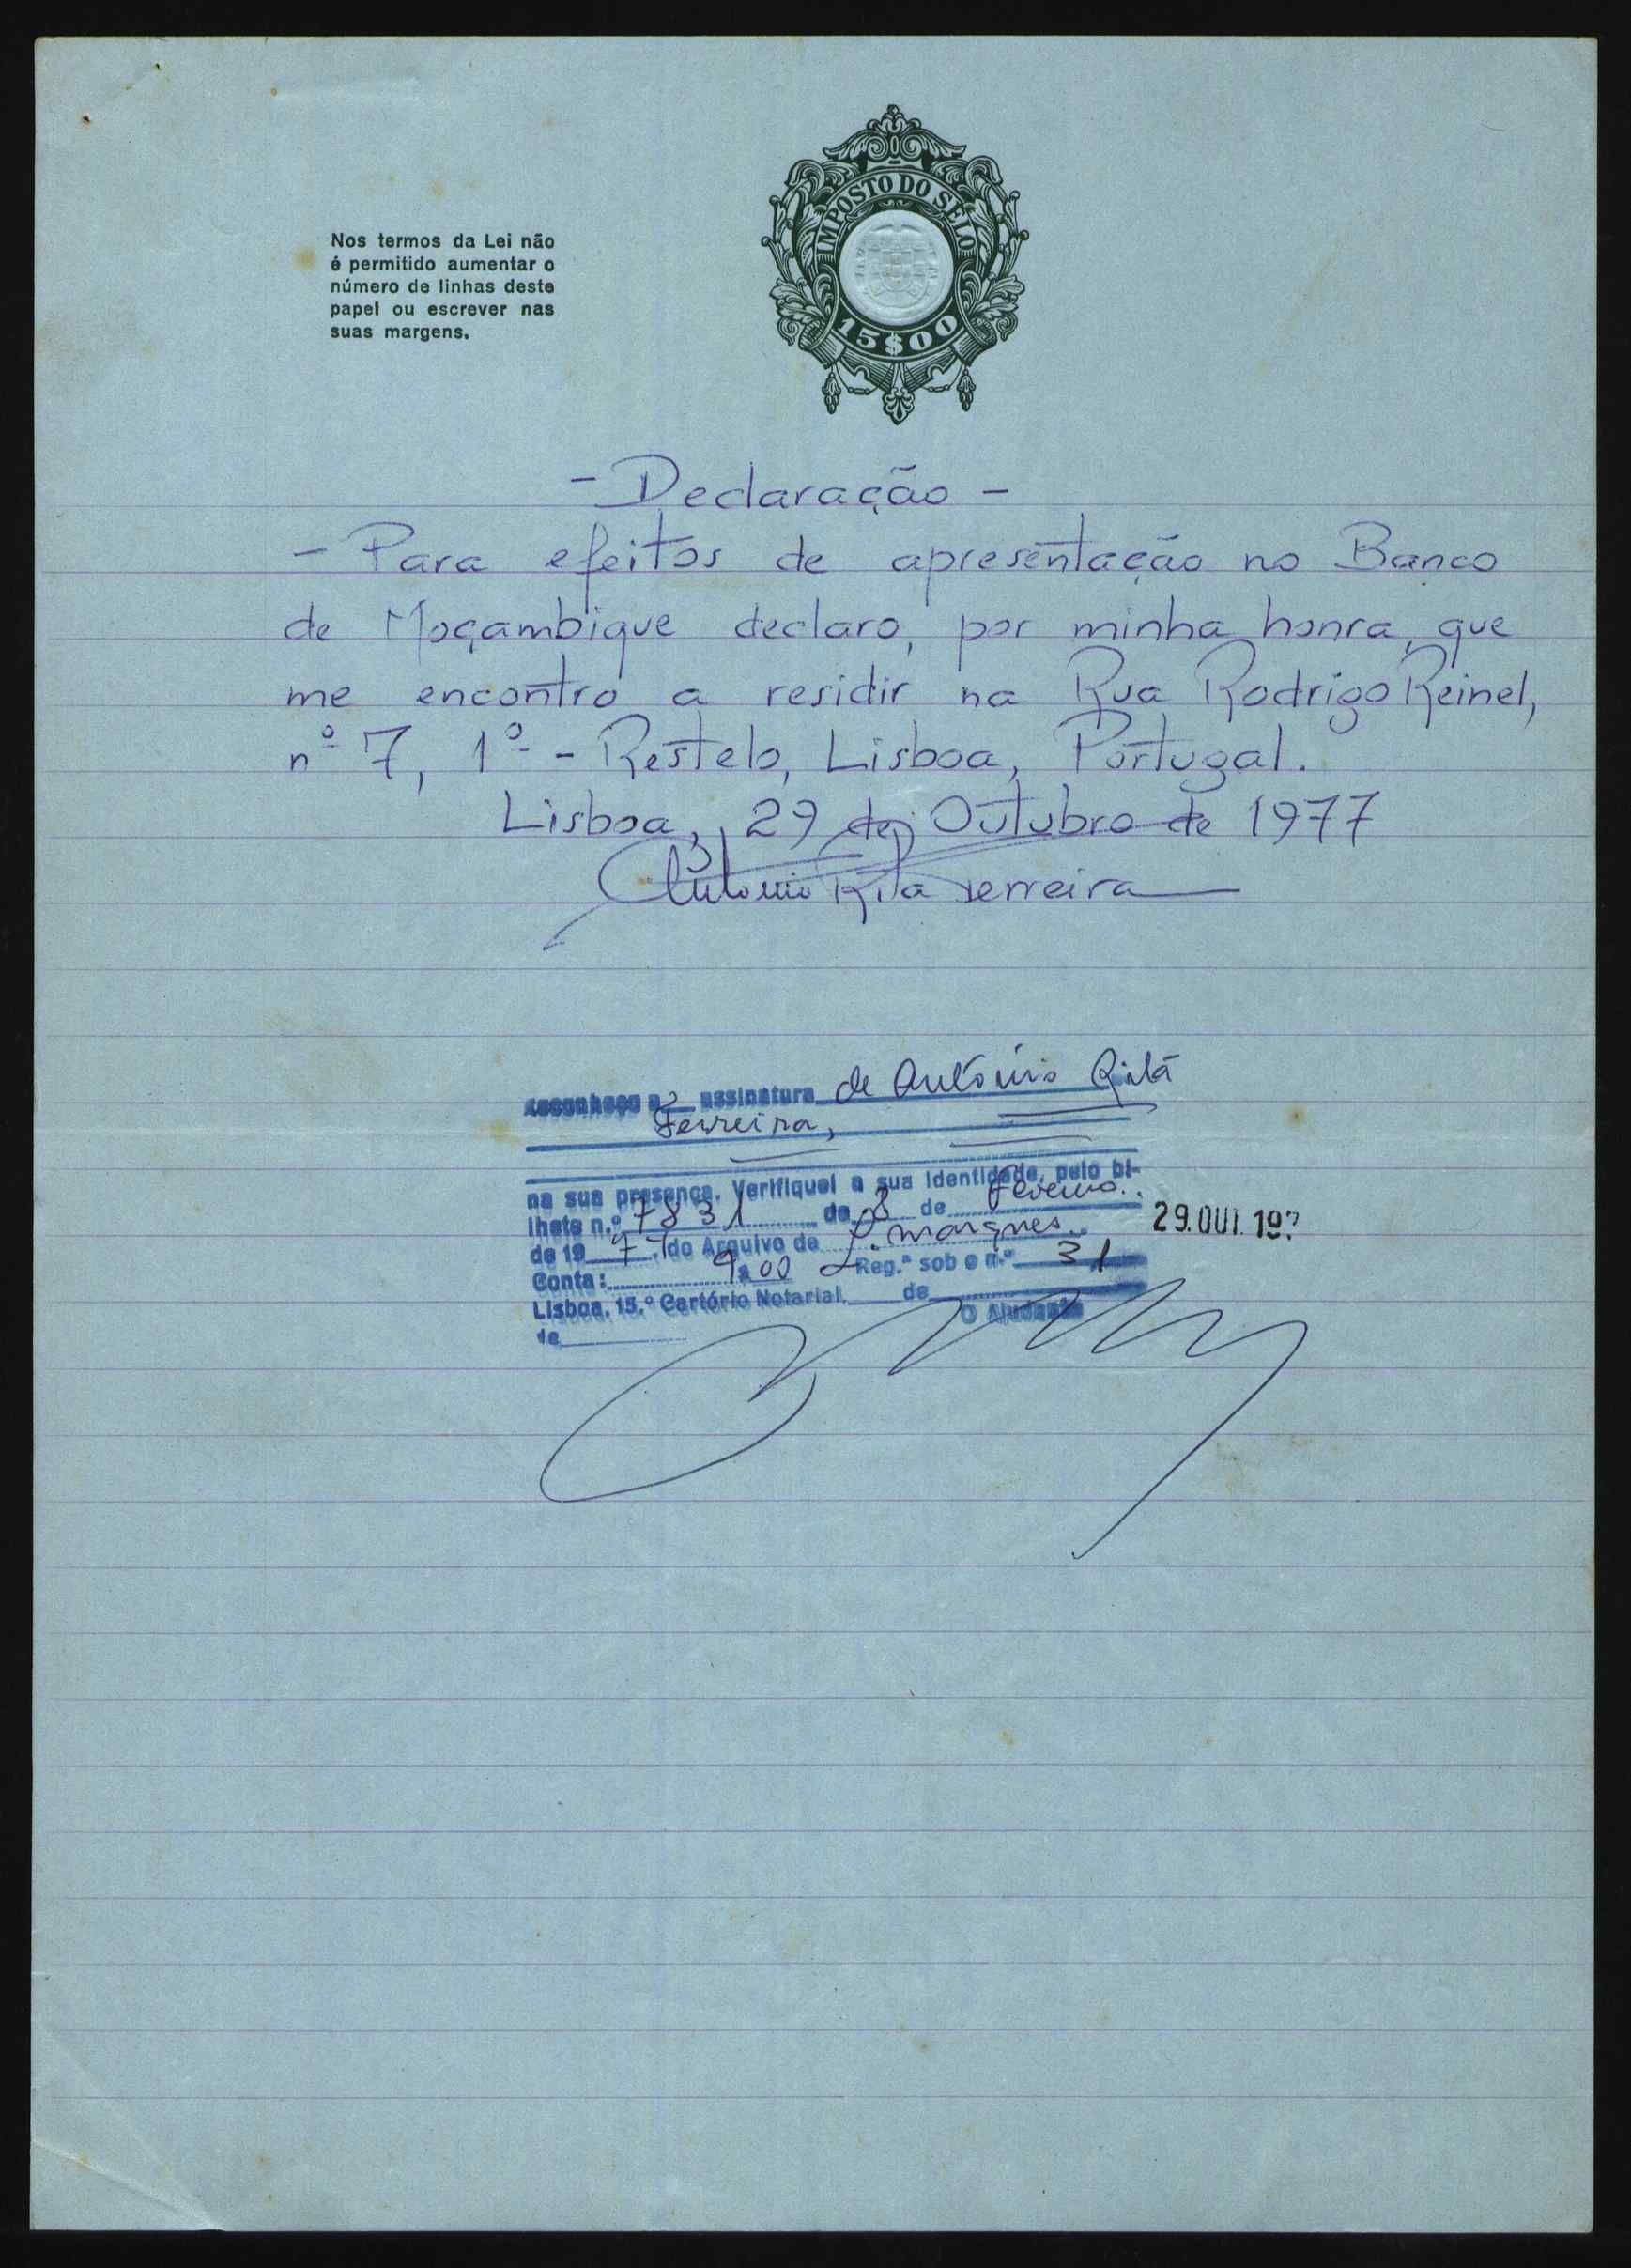 Nos termos da Lei não
é permitido aumentar o
número de linhas deste
papel ou escrever nas
suas margens.
IMPOSTO DO SELO
15$00
- Declaração -
- Para efeitos de apresentação no Banco
de Moçambique declaro, por minha honra, que
me encontro a residir na Rua Rodrigo Reinel,
nº 7, 1º - Restelo, Lisboa, Portugal.
Lisboa, 29 de Outubro de 1977
António Rita Ferreira
Reconheço a assinatura de António Rita
Ferreira,
na sua presença. Verifiquei a sua identidade, pelo bi-
lhete n.º 7831 de 8 de Fevereiro
29.OUT.197
de 19 77 do Arquivo de L. Marques
Conta: 9$00 Reg.º sob o n.º 31
Lisboa, 15.º Cartório Notarial, de
de O Ajudante